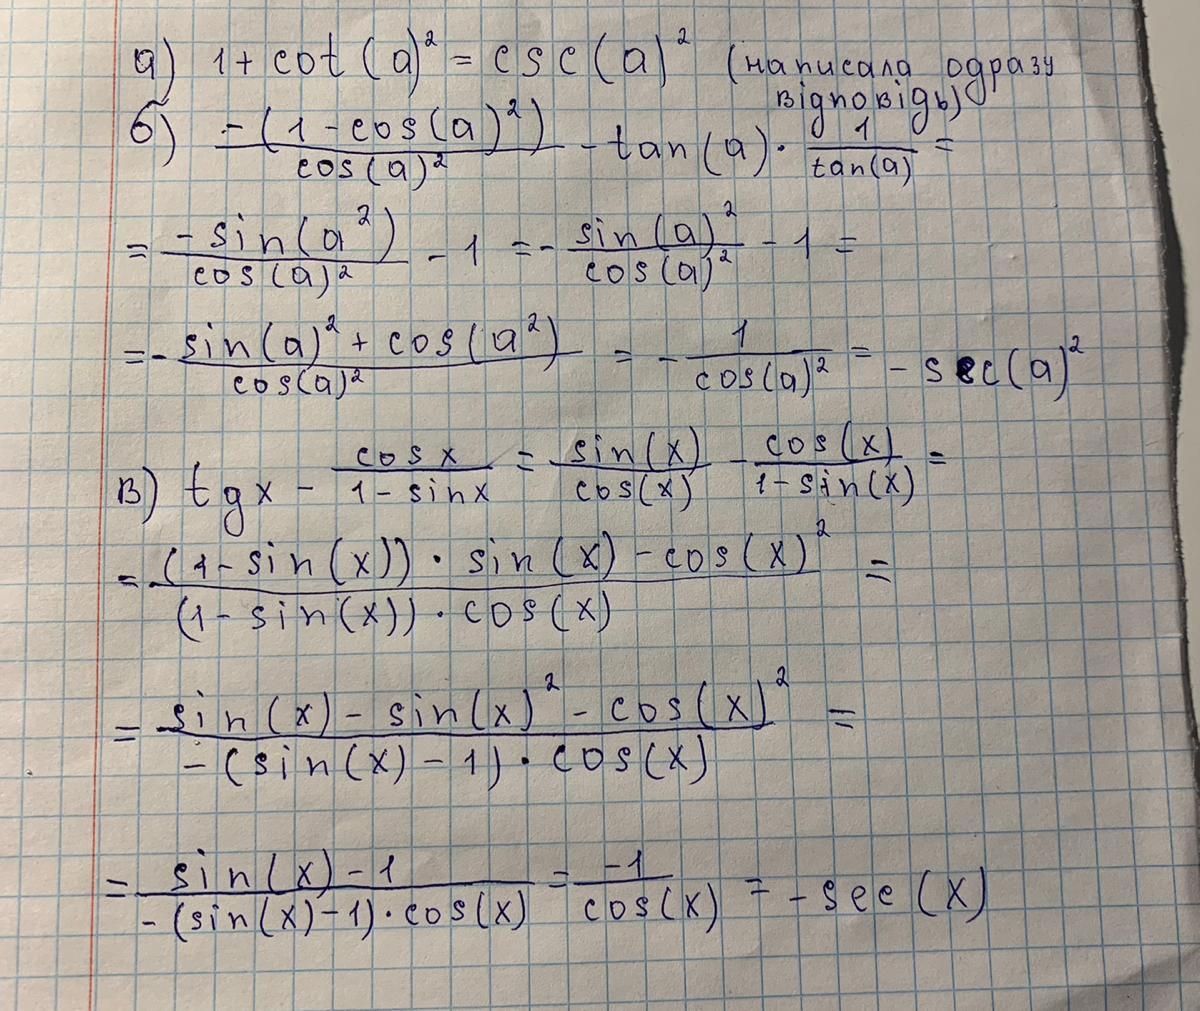 а) 1 + cot(a)² = csc(a)² (написала одразу
відповідь)
б) -(1 - cos(a)²) / cos(a)² - tan(a) · 1 / tan(a) =
= -sin(a²) / cos(a)² - 1 = - sin(a)² / cos(a)² - 1 =
= - sin(a)² + cos(a²) / cos(a)² = - 1 / cos(a)² = - sec(a)²
в) tgx - cosx / 1 - sinx = sin(x) / cos(x) - cos(x) / 1 - sin(x) =
= (1 - sin(x)) · sin(x) - cos(x)² / (1 - sin(x)) · cos(x) =
= sin(x) - sin(x)² - cos(x)² / -(sin(x) - 1) · cos(x) =
= sin(x) - 1 / -(sin(x) - 1) · cos(x) = -1 / cos(x) = - sec(x)